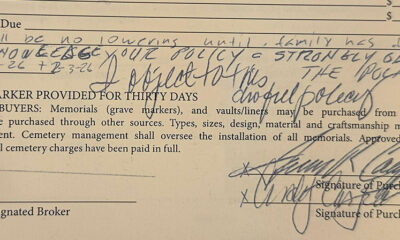 $
Due $
ll be no lowering until family has
YOUR POLICY = STRONGLY
-26 2-3-26
I object to this THE
policy
ARKER PROVIDED FOR THIRTY DAYS
BUYERS: Memorials (grave markers), and vaults/liners may be purchased from
e purchased through other sources. Types, sizes, design, material and craftsmanship m
ent. Cemetery management shall oversee the installation of all memorials. Approved
l cemetery charges have been paid in full.
x
Signature of Purc
x
gnated Broker Signature of Purch